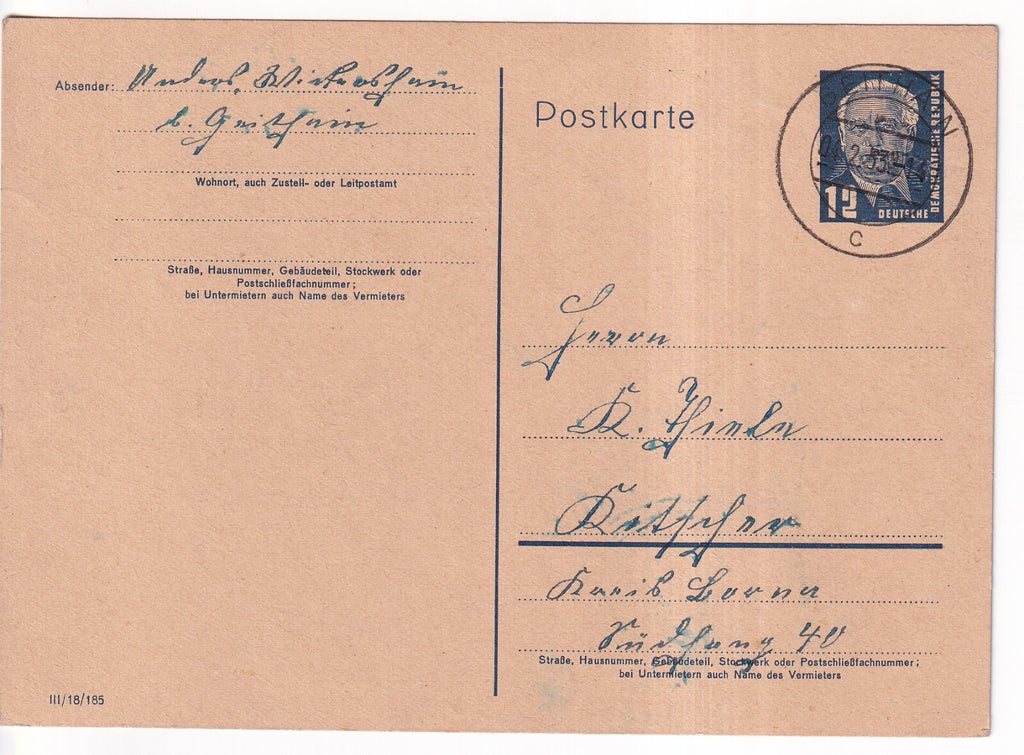 Absender: Anders, Wickershain
b. Geithain
Wohnort, auch Zustell- oder Leitpostamt
Straße, Hausnummer, Gebäudeteil, Stockwerk oder
Postschließfachnummer;
bei Untermietern auch Name des Vermieters
III/18/185
Postkarte
12
DEUTSCHE
DEMOKRATISCHE REPUBLIK
2.53
c
Herrn
K. Thiele
Kitscher
Kreis Borna
Südhang 40
Straße, Hausnummer, Gebäudeteil, Stockwerk oder Postschließfachnummer;
bei Untermietern auch Name des Vermieters